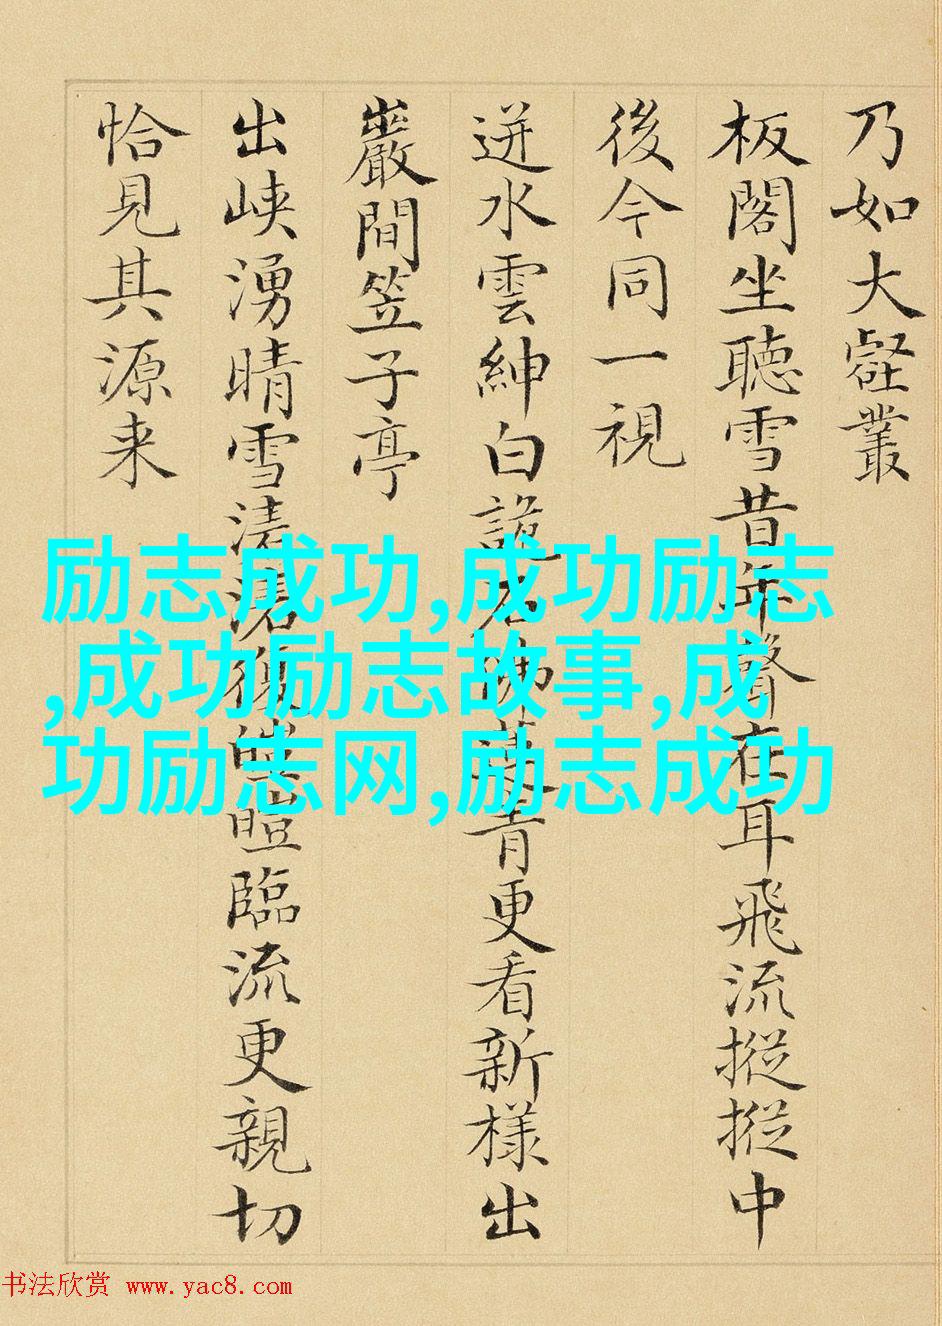 乃如大壑叢
板閣坐聽雪昔年聲在耳飛流摐摐中
後今同一視
迸水雲紳白詭石佛青更看新樣出
巖間笠子亭
出峡湧晴雪復皚臨流更親切
恰見其源来
励志成功,成功励志
,成功励志故事,成
功励志网,励志成功
书法欣赏 www.yac8.com